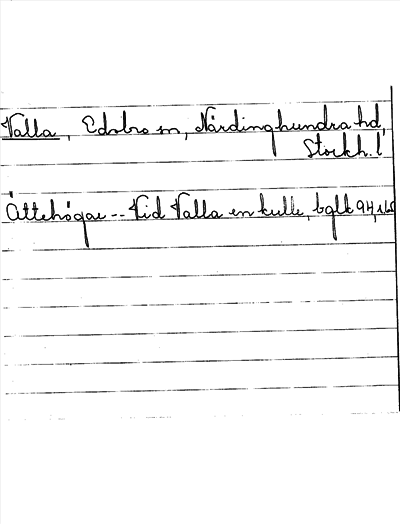 Valla, Edsbro sn, Närdinghundra hd,
Stockh. l
Ättehögar -- Vid Valla en kulle, bglk 94,